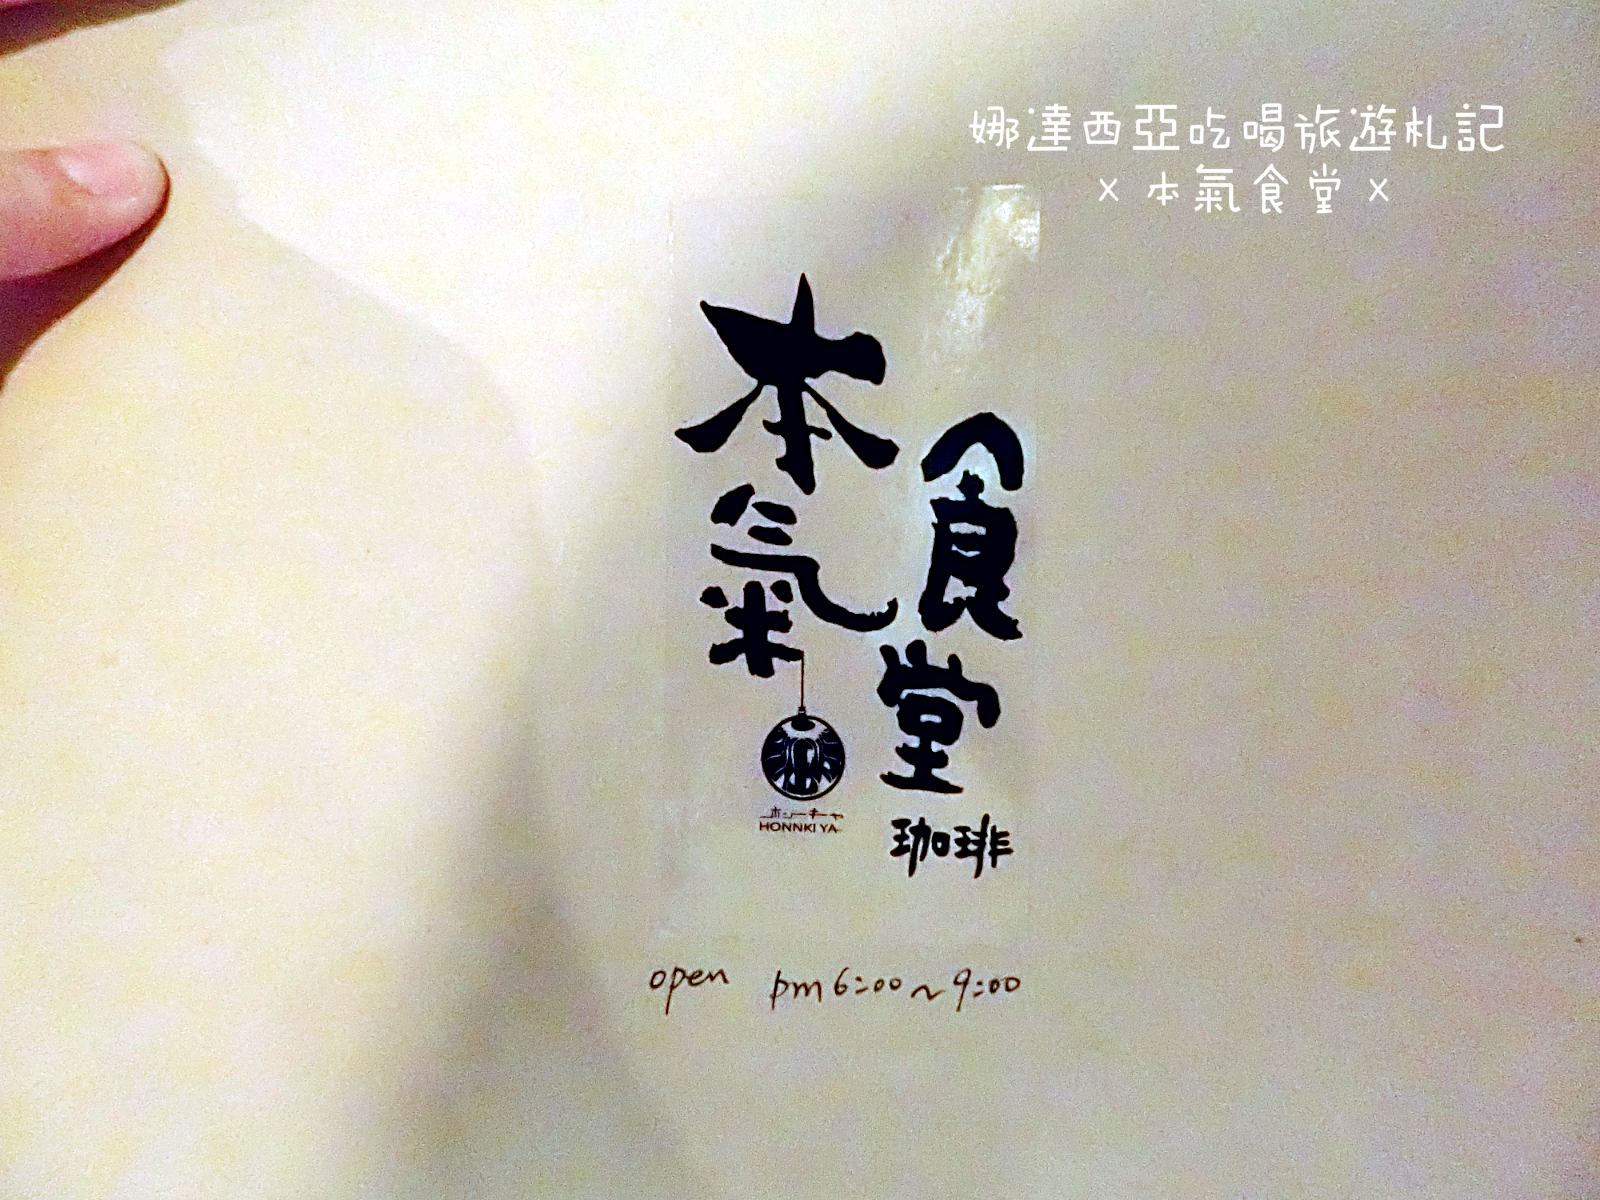 娜達西亞吃喝旅遊札記
x 本氣食堂 x
本氣
食堂
珈琲
ホンキヤ
HONNKI YA
open pm 6:00~9:00